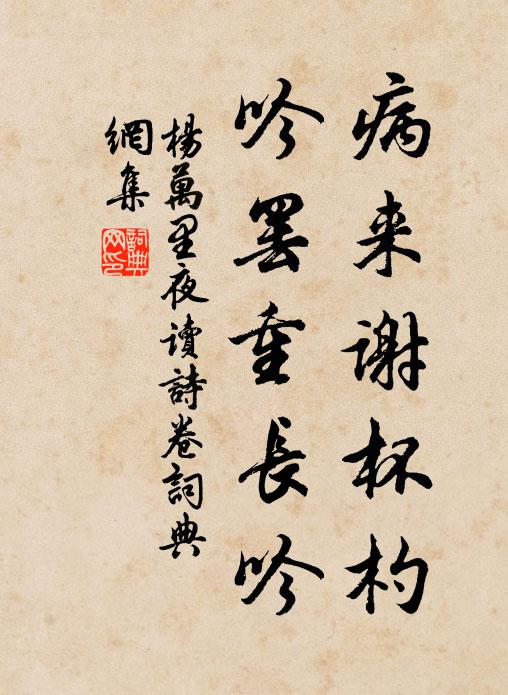 病来谢杯杓
吟罢重長吟
楊萬里夜讀詩卷詞典
網集
詞典
网印